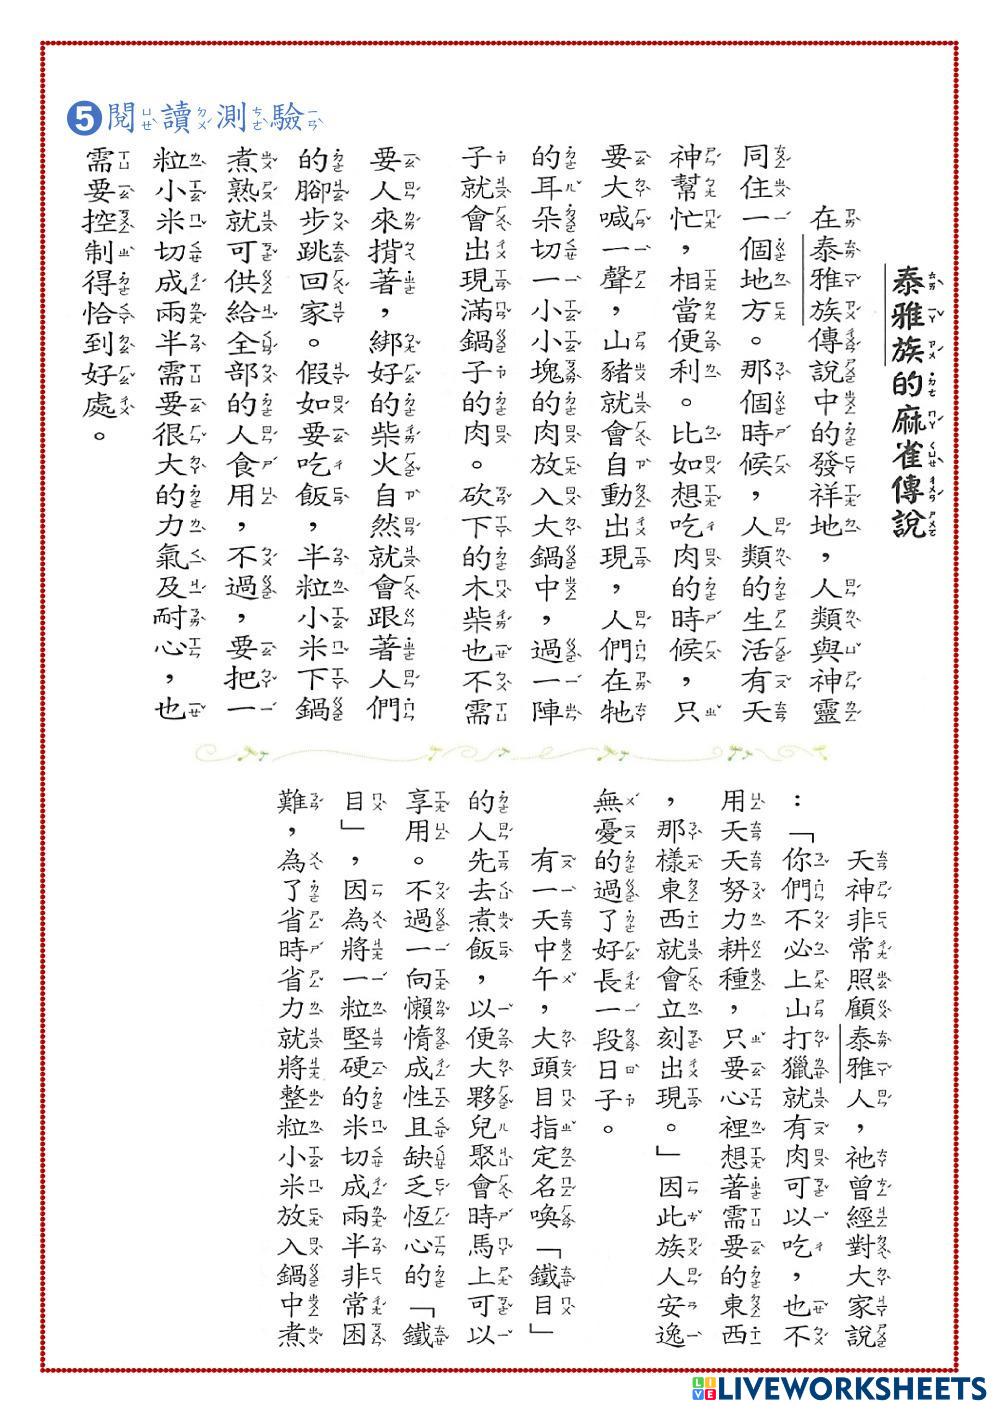 5閱讀測驗
泰雅族的麻雀傳說
在泰雅族傳說中的發祥地，人類與神靈
同住一個地方。那個時候，人類的生活有天
神幫忙，相當便利。比如想吃肉的時候，只
要大喊一聲，山豬就會自動出現，人們在牠
的耳朵切一小小塊的肉放入大鍋中，過一陣
子就會出現滿鍋子的肉。砍下的木柴也不需
要人來揹著，綁好的柴火自然就會跟著人們
的腳步跳回家。假如要吃飯，半粒小米下鍋
煮熟就可供給全部的人食用，不過，要把一
粒小米切成兩半需要很大的力氣及耐心，也
需要控制得恰到好處。
天神非常照顧泰雅人，祂曾經對大家說
：「你們不必上山打獵就有肉可以吃，也不
用天天努力耕種，只要心裡想著需要的東西
，那樣東西就會立刻出現。」因此族人安逸
無憂的過了好長一段日子。
有一天中午，大頭目指定名喚「鐵目」
的人先去煮飯，以便大夥兒聚會時馬上可以
享用。不過一向懶惰成性且缺乏恆心的「鐵
目」，因為將一粒堅硬的米切成兩半非常困
難，為了省時省力就將整粒小米放入鍋中煮
LIVEWORKSHEETS